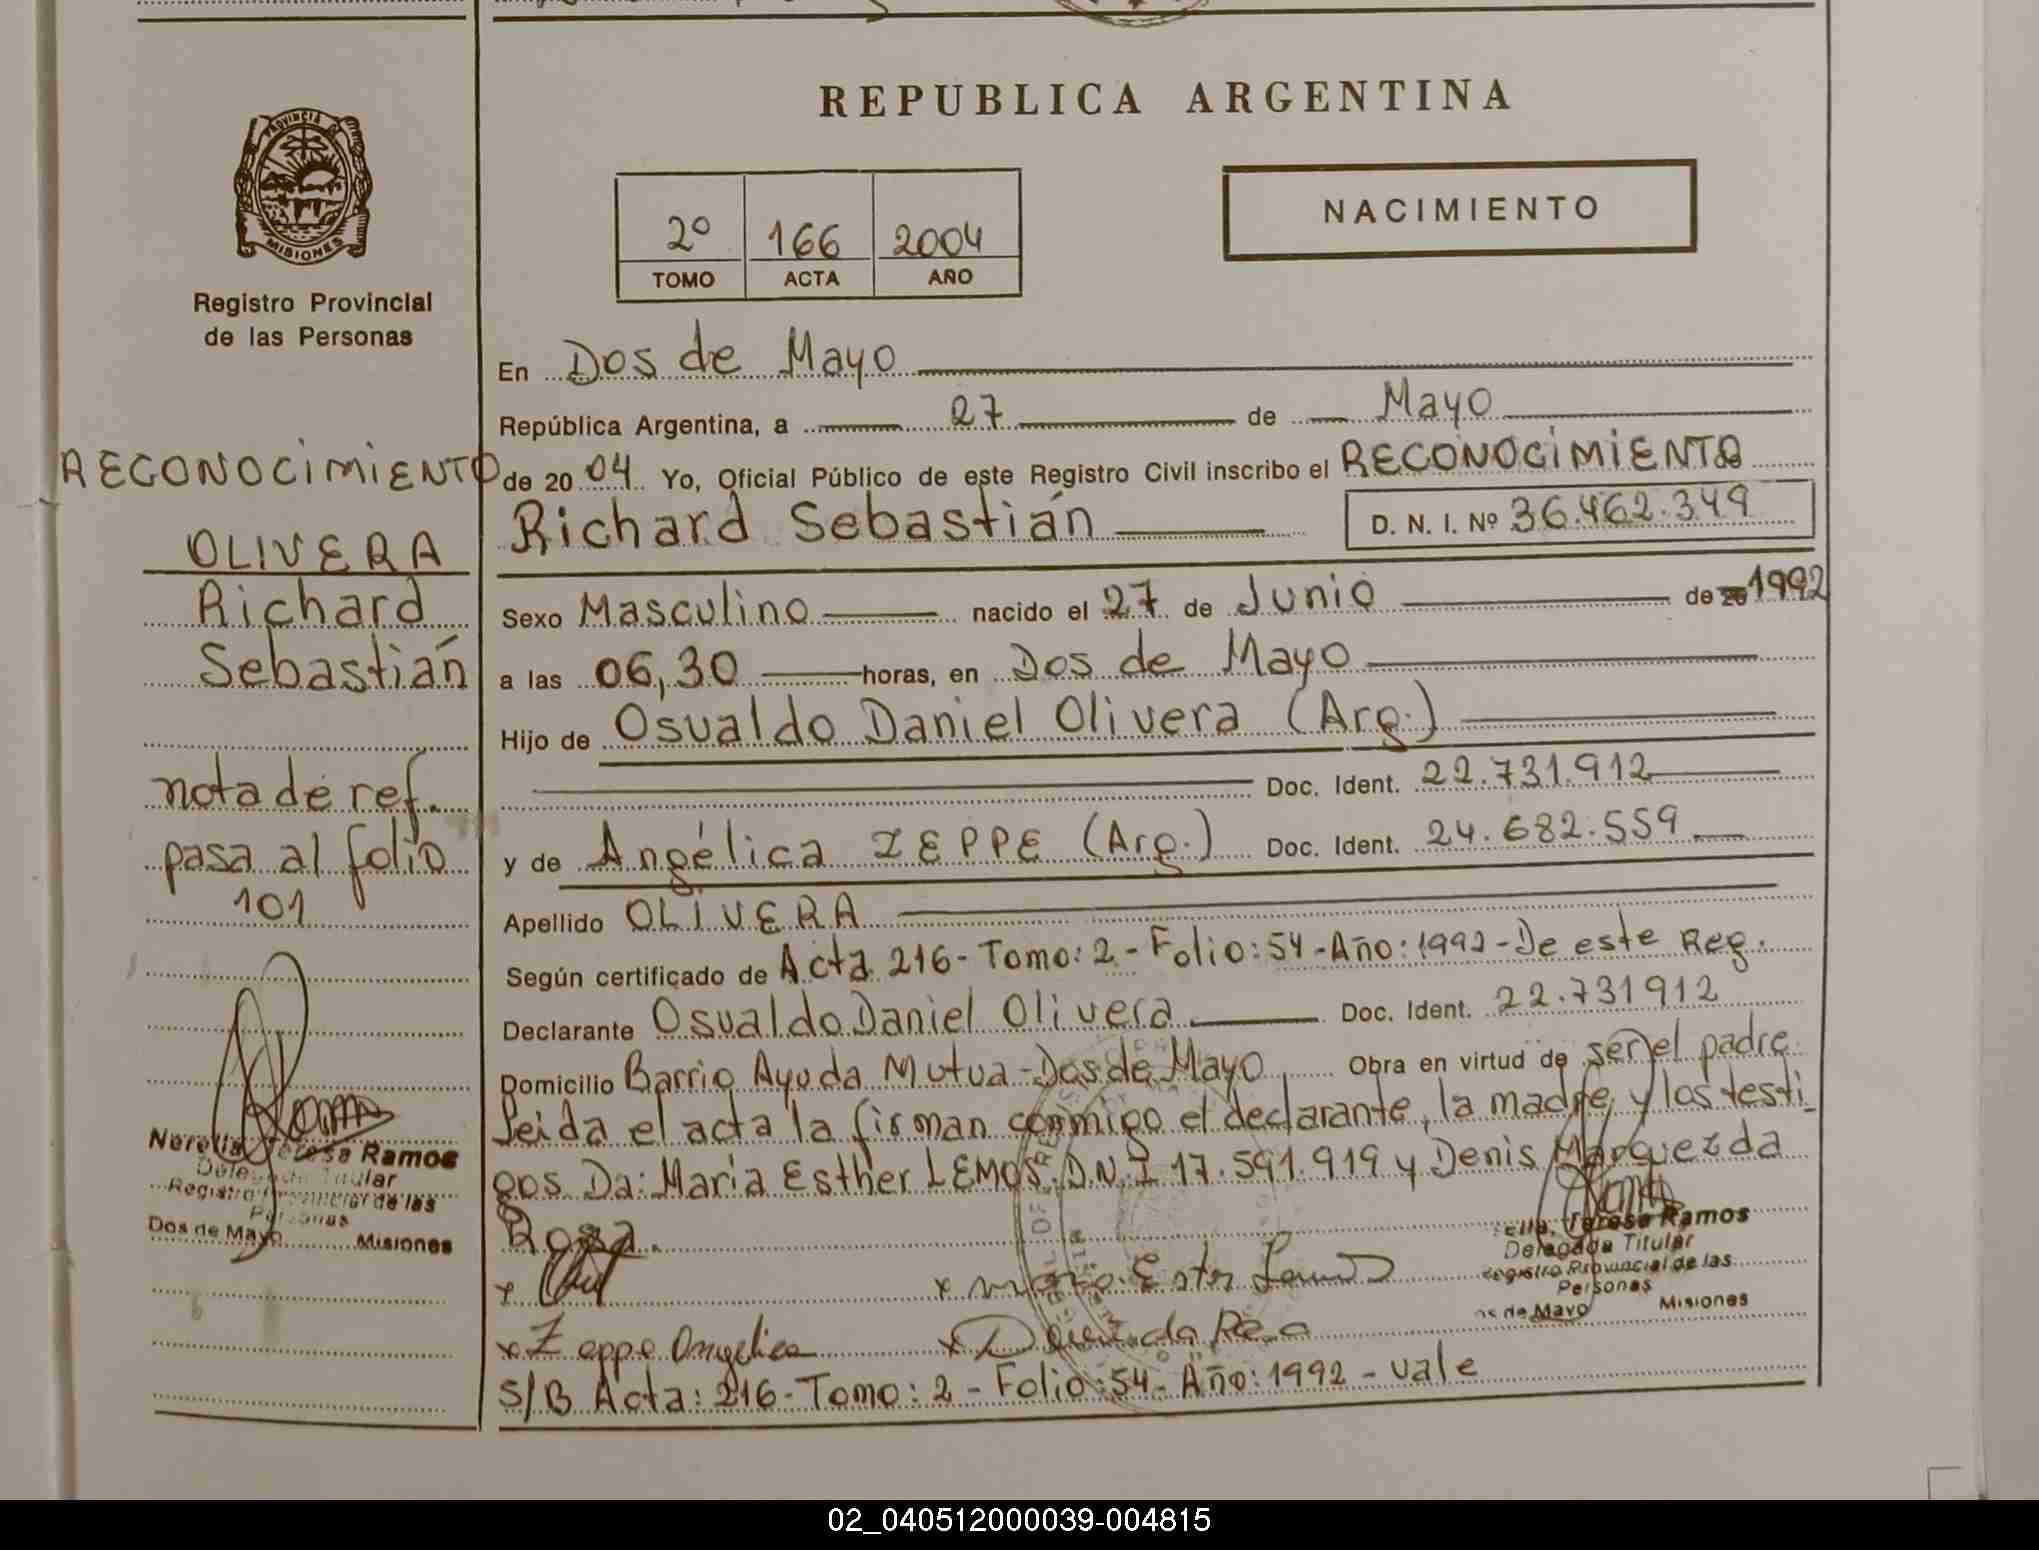 REPUBLICA ARGENTINA
PROVINCIA DE
MISIONES
Registro Provincial
de las Personas
2º 166 2004
TOMO ACTA AÑO
NACIMIENTO
RECONOCIMIENTO
OLIVERA
Richard
Sebastián
nota de ref.
pasa al folio
101
Teresa Ramos
Delegada Titular
Registro Provincial de las
Personas
Dos de Mayo Misiones
En Dos de Mayo
República Argentina, a 27 de Mayo
de 2004. Yo, Oficial Público de este Registro Civil inscribo el RECONOCIMIENTO
Richard Sebastián D. N. I. Nº 36.462.349
Sexo Masculino nacido el 27 de Junio de 1992
a las 06,30 horas, en Dos de Mayo
Hijo de Osualdo Daniel Olivera (Arg.)
Doc. Ident. 22.731.912
y de Angélica ZEPPE (Arg.) Doc. Ident. 24.682.559
Apellido OLIVERA
Según certificado de Acta 216- Tomo: 2 - Folio: 54 - Año: 1992 - De este Reg.
Declarante Osualdo Daniel Olivera Doc. Ident. 22.731912
Domicilio Barrio Ayuda Mutua - Dos de Mayo Obra en virtud de ser el padre
leida el acta la firman conmigo el declarante, la madre y los testi
gos Da: María Esther LEMOS. D.N.I 17.591.919 y Denis Marquez da
Rosa.
x
x Zeppe Angelica x
Teresa Ramos
Delegada Titular
Registro Provincial de las
Personas
de Mayo Misiones
S/B Acta: 216- Tomo: 2 - Folio: 54- Año: 1992 - vale
02_040512000039-004815